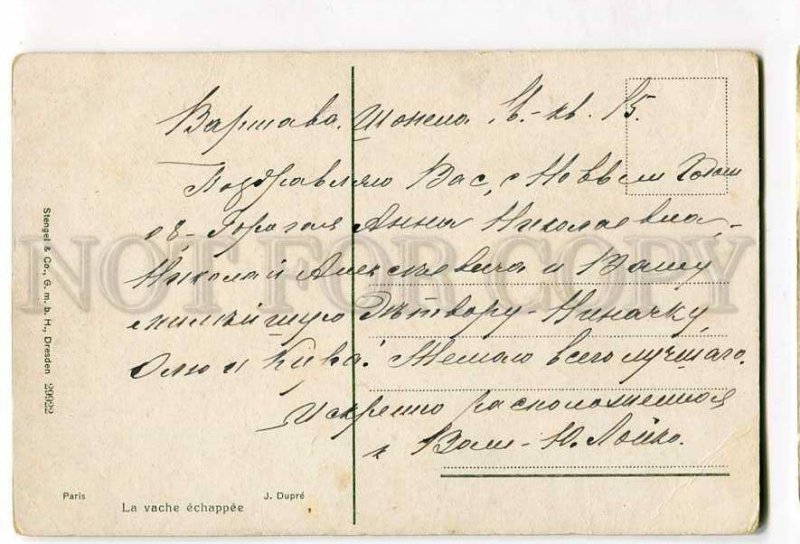 Варшава. Шопена 16. кв. 15.
Поздравляю Вас, с Новым Годом
дорогая Анна Николаевна,
Николай Алексѣевича и Вашу
милѣйшую дѣтвору - Ниночку,
Олю и Кива! Желаю всего лучшаго.
Искренно расположенная
к Вам - Ю. Лойко.
Stengel & Co., G. m. b. H., Dresden 29922
Paris
J. Dupré
La vache échappée
NOT FOR COPY